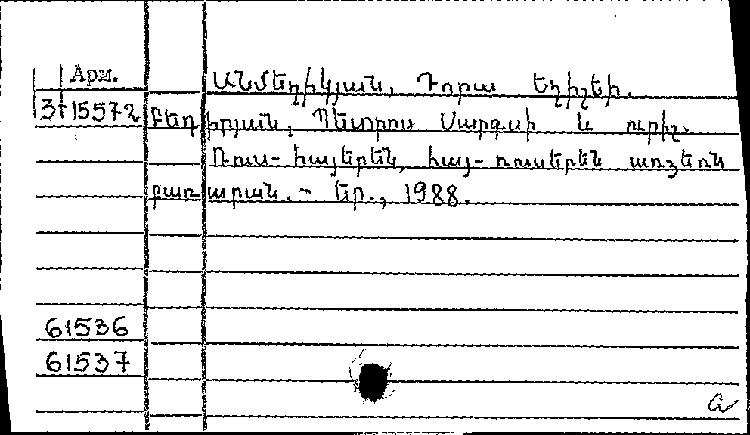 Арм.
ԱՆՄԵՂԻԿՅԱՆ, Դորա Եղիշեի.
3+15572 Բեդիրյան, Պետրոս Սարգսի և ուրիշ.
Ռուս-հայերեն, հայ-ռուսերեն առձեռն
բառարան. - Եր., 1988.
61536
61537
a